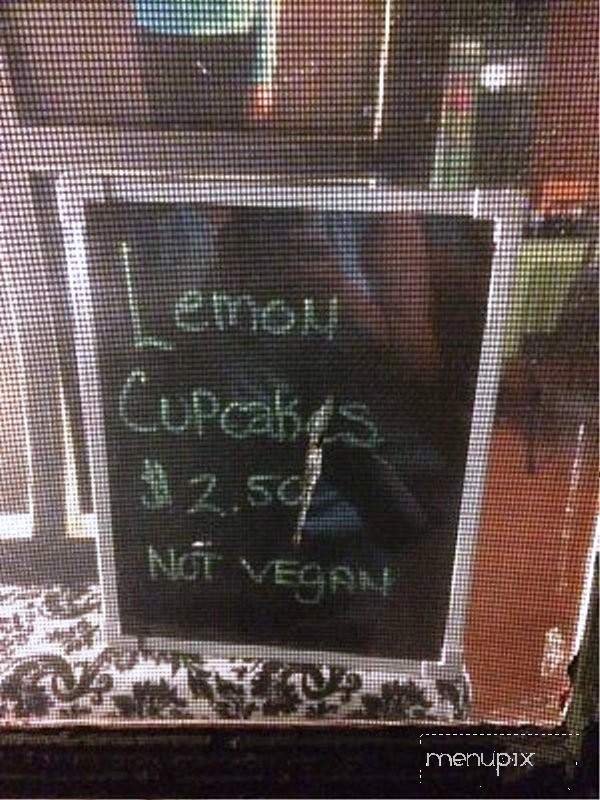 Lemon
Cupcakes
$2.50
NOT VEGAN
menupix